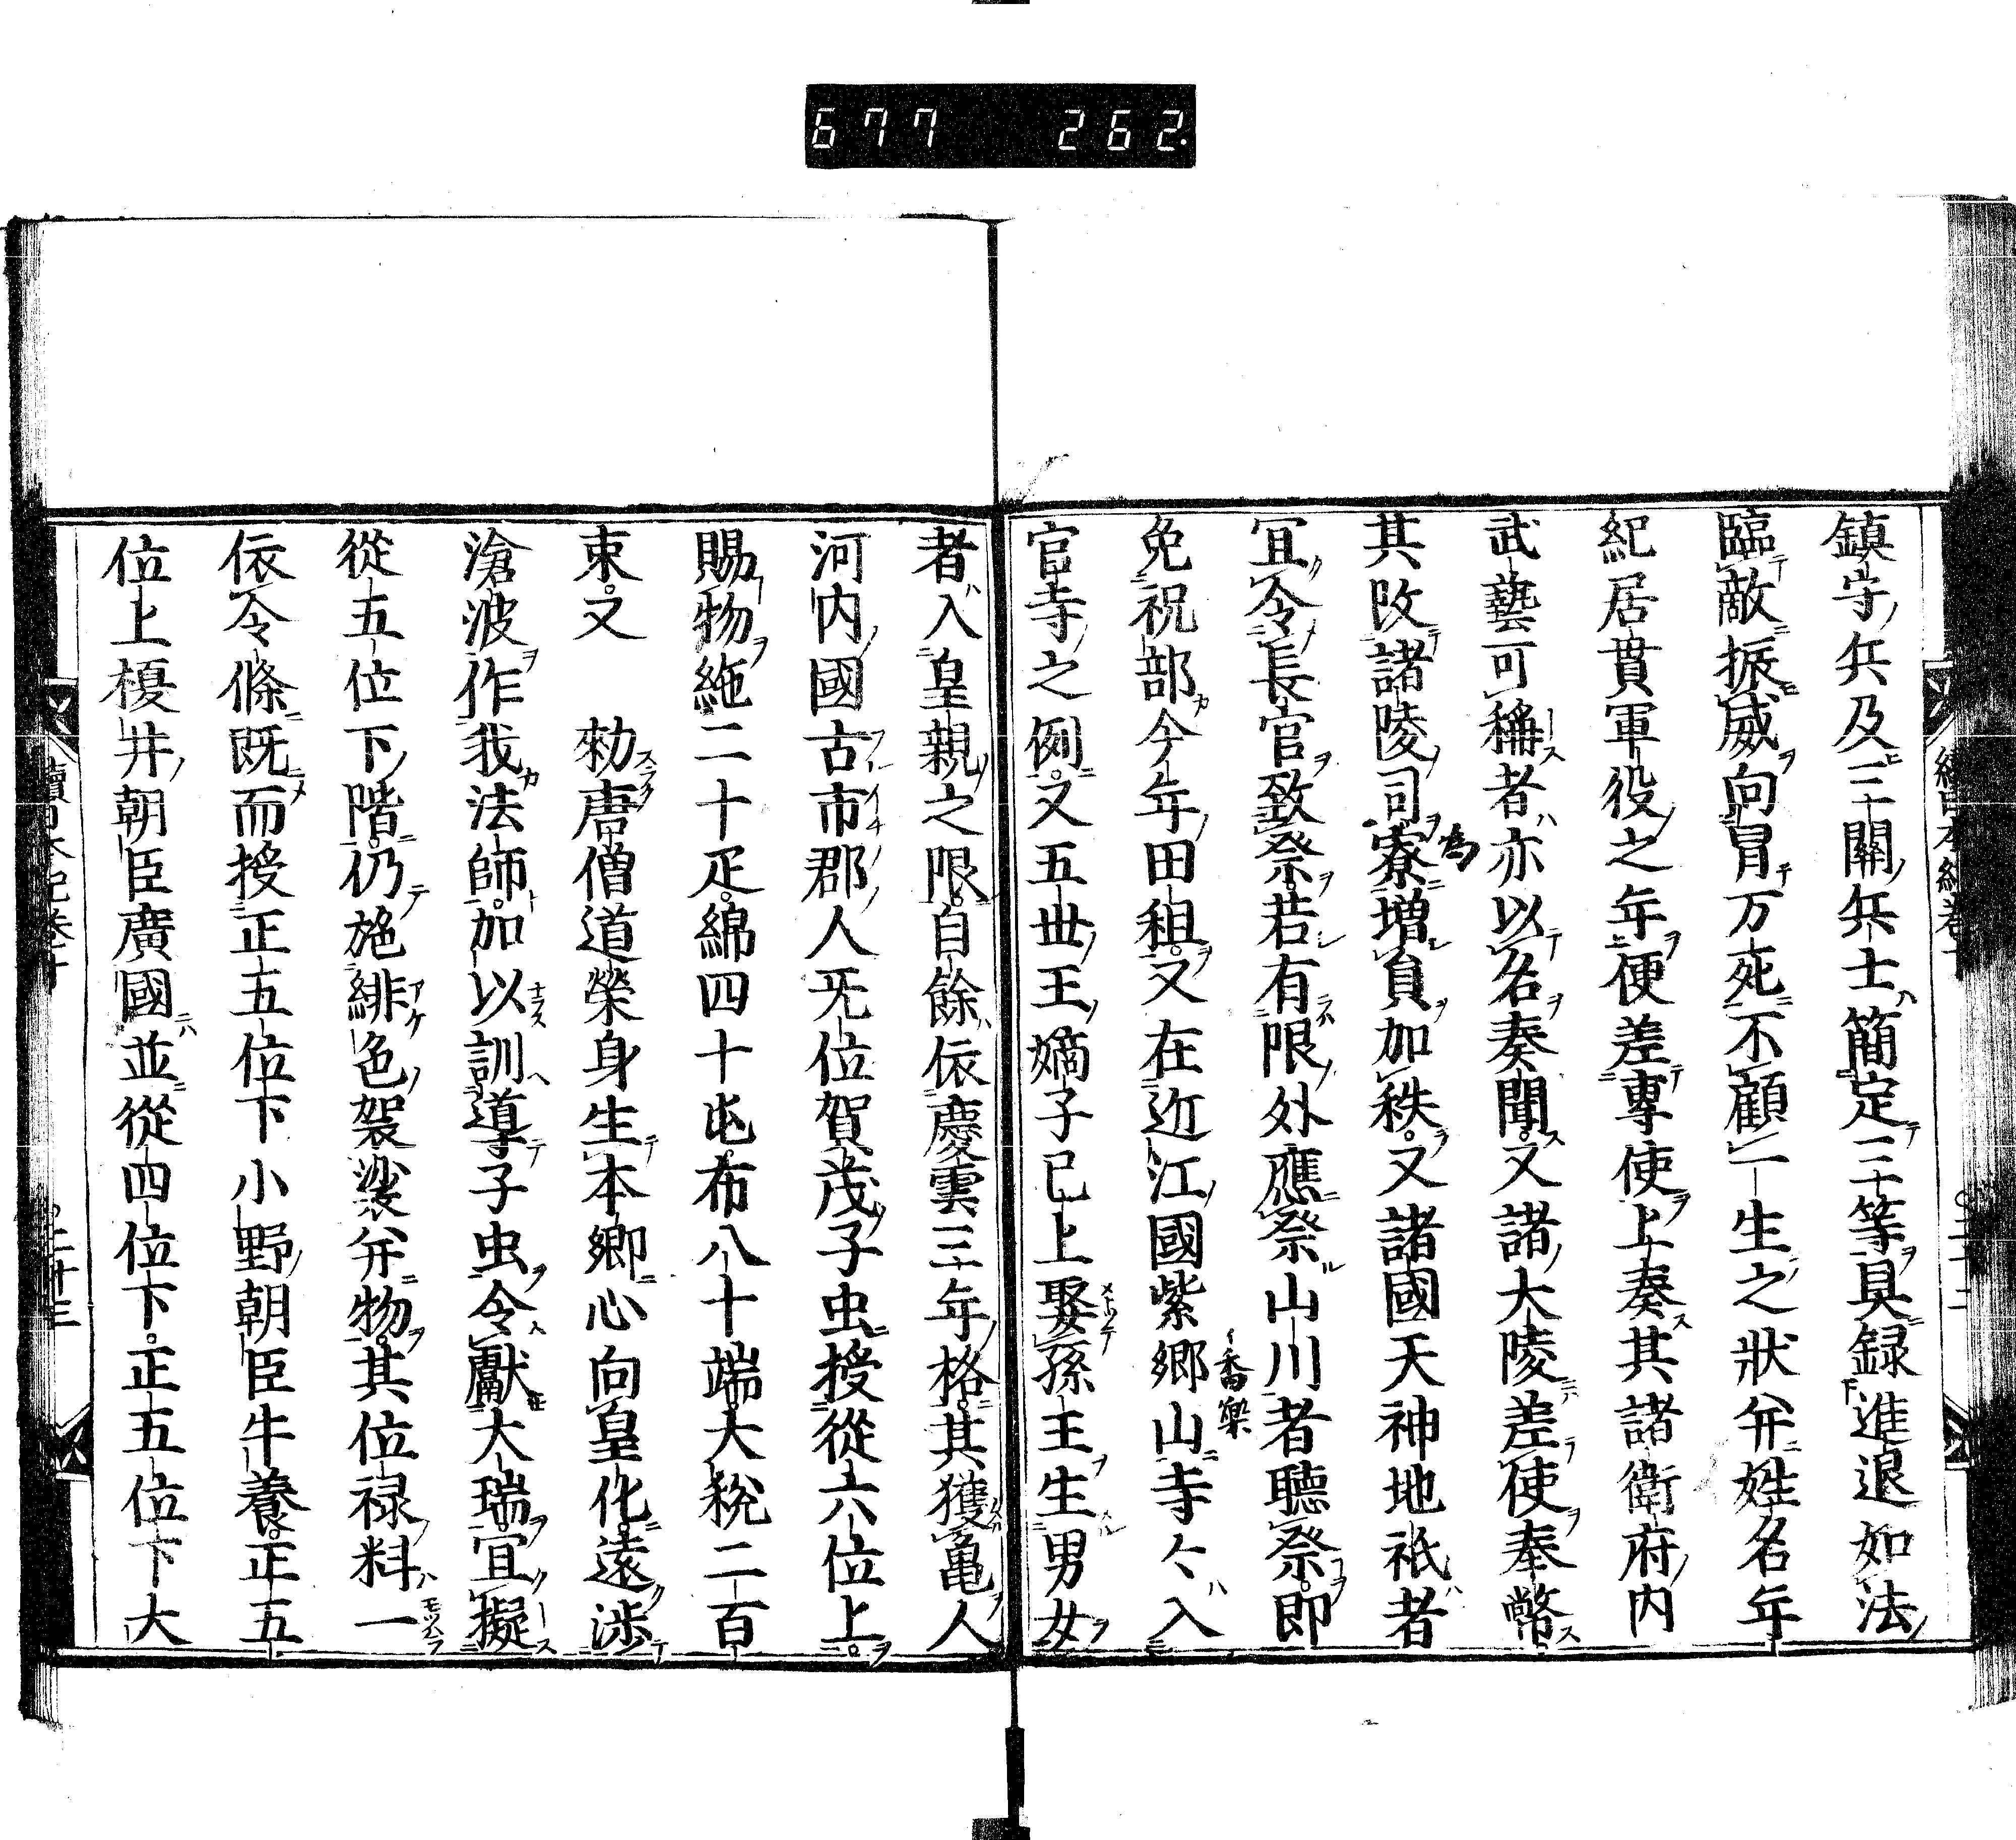 677 262
鎮守兵及三關兵士簡定三等具録進退如法
臨敵振威向冐万死不顧一生之狀并姓名年
紀居貫軍役之年便差專使上奏其諸衛府内
武藝可稱者亦以名奏聞。又諸大陵差使奉幣
其改諸陵司寮増員加秩。又諸國天神地祇者
爲
宜令長官致祭。若有限外應祭山川者聽祭。即
免祝部今年田租。又在近江國紫郷山寺々入
香樂
官寺之例。又五世王嫡子已上娶孫王生男女
者入皇親之限。自餘依慶雲三年格。其獲亀人
河内國古市郡人旡位賀茂子虫授從六位上。
賜物絁二十疋。綿四十屯。布八十端。大税二百
束。又 勑唐僧道榮身生本郷心向皇化。遠渉
滄波作我法師。加以訓導子虫令獻大瑞。宜擬
從五位下階。仍施緋色袈裟并物。其位禄料一
依令條既而授正五位下小野朝臣牛養。正五
位上榎井朝臣廣國並從四位下。正五位下大